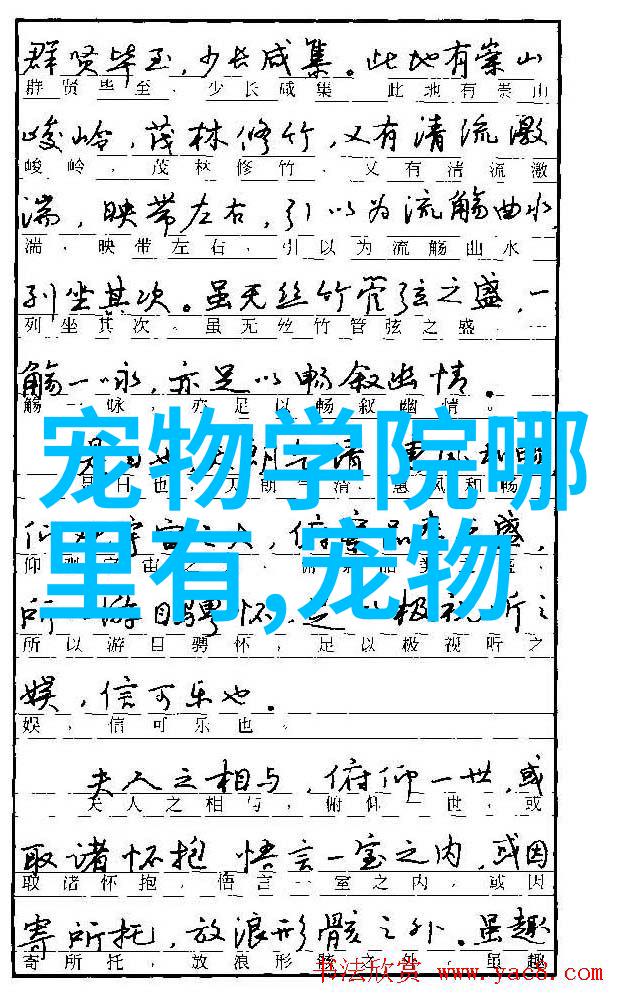 群贤毕至,少长咸集。此地有崇山
群贤毕至,少长咸集 此地有崇山
峻岭,茂林修竹,又有清流激
峻岭,茂林修竹,又有清流激
湍,映带左右,引以为流觞曲水,
湍,映带左右,引以为流觞曲水
列坐其次。虽无丝竹管弦之盛,一
列坐其次。虽无丝竹管弦之盛,一
觞一咏,亦足以畅叙幽情。
觞一咏,亦足以畅叙幽情。
宠物学院哪
里有,宠物
是日也,天朗气清,惠风和畅
所以游目骋怀,足以极视听之
所以游目骋怀,足以极视听之
娱,信可乐也。
娱,信可乐也。
夫人之相与,俯仰一世,或
夫人之相与,俯仰一世,或
取诸怀抱 悟言一室之内,或因
取诸怀抱,悟言一室之内,或因
寄所托,放浪形骸之外。虽趣
寄所托,放浪形骸之外。虽趣
书法欣赏 www.yac8.com